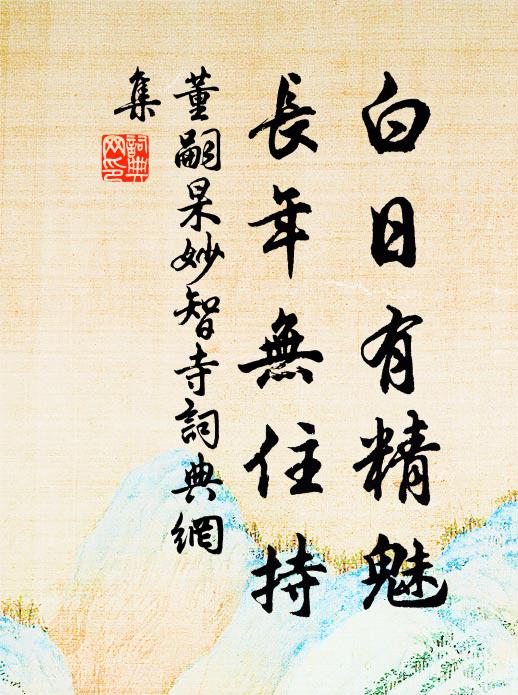 白日有精魅
長年無住持
董嗣杲妙智寺詞典網
集
詞典網印